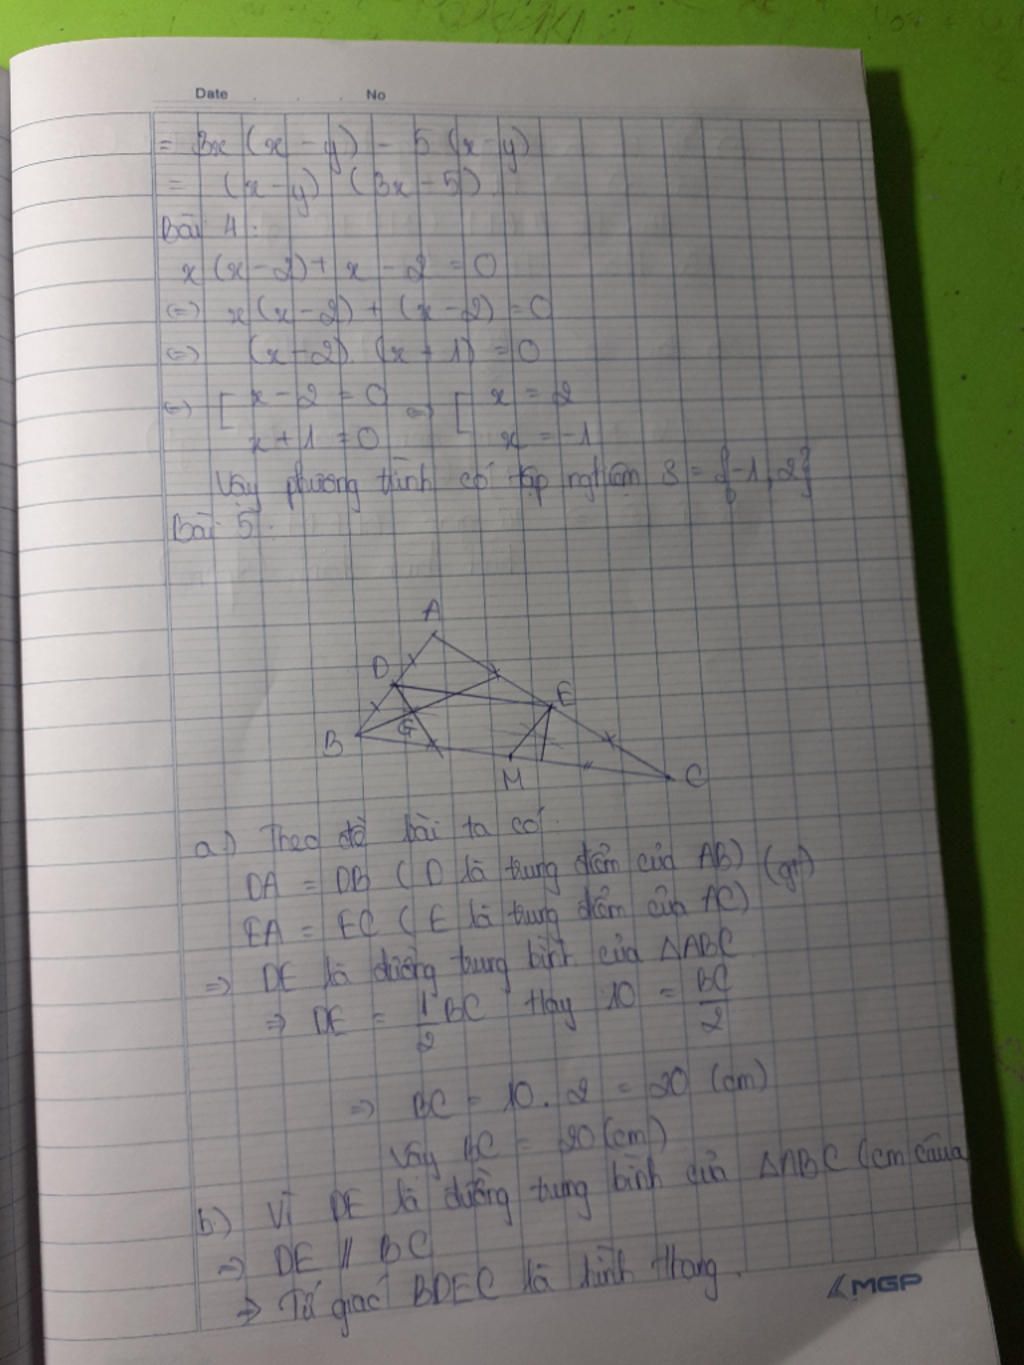 Date No
= 3x (x - y) - 5 (x - y)
= (x - y) (3x - 5)
Bài 4:
x (x - 2) + x - 2 = 0
(=) x (x - 2) + (x - 2) = 0
(=) (x - 2). (x + 1) = 0
(=) [ x - 2 = 0 (=) [ x = 2
x + 1 = 0 x = -1
Vậy phương trình có tập nghiệm S = {-1, 2}
Bài 5:
A
D
E
B
G
M
C
a) Theo đề bài ta có:
DA = DB (D là trung điểm của AB) (gt)
EA = EC (E là trung điểm của AC)
=> DE là đường trung bình của ΔABC
=> DE = 1/2 BC Hay 10 = BC/2
=> BC = 10 . 2 = 20 (cm)
Vậy BC = 20 (cm)
b) Vì DE là đường trung bình của ΔABC (cm câu a
=> DE // BC
=> Tứ giác BDEC là hình thang.
MGP